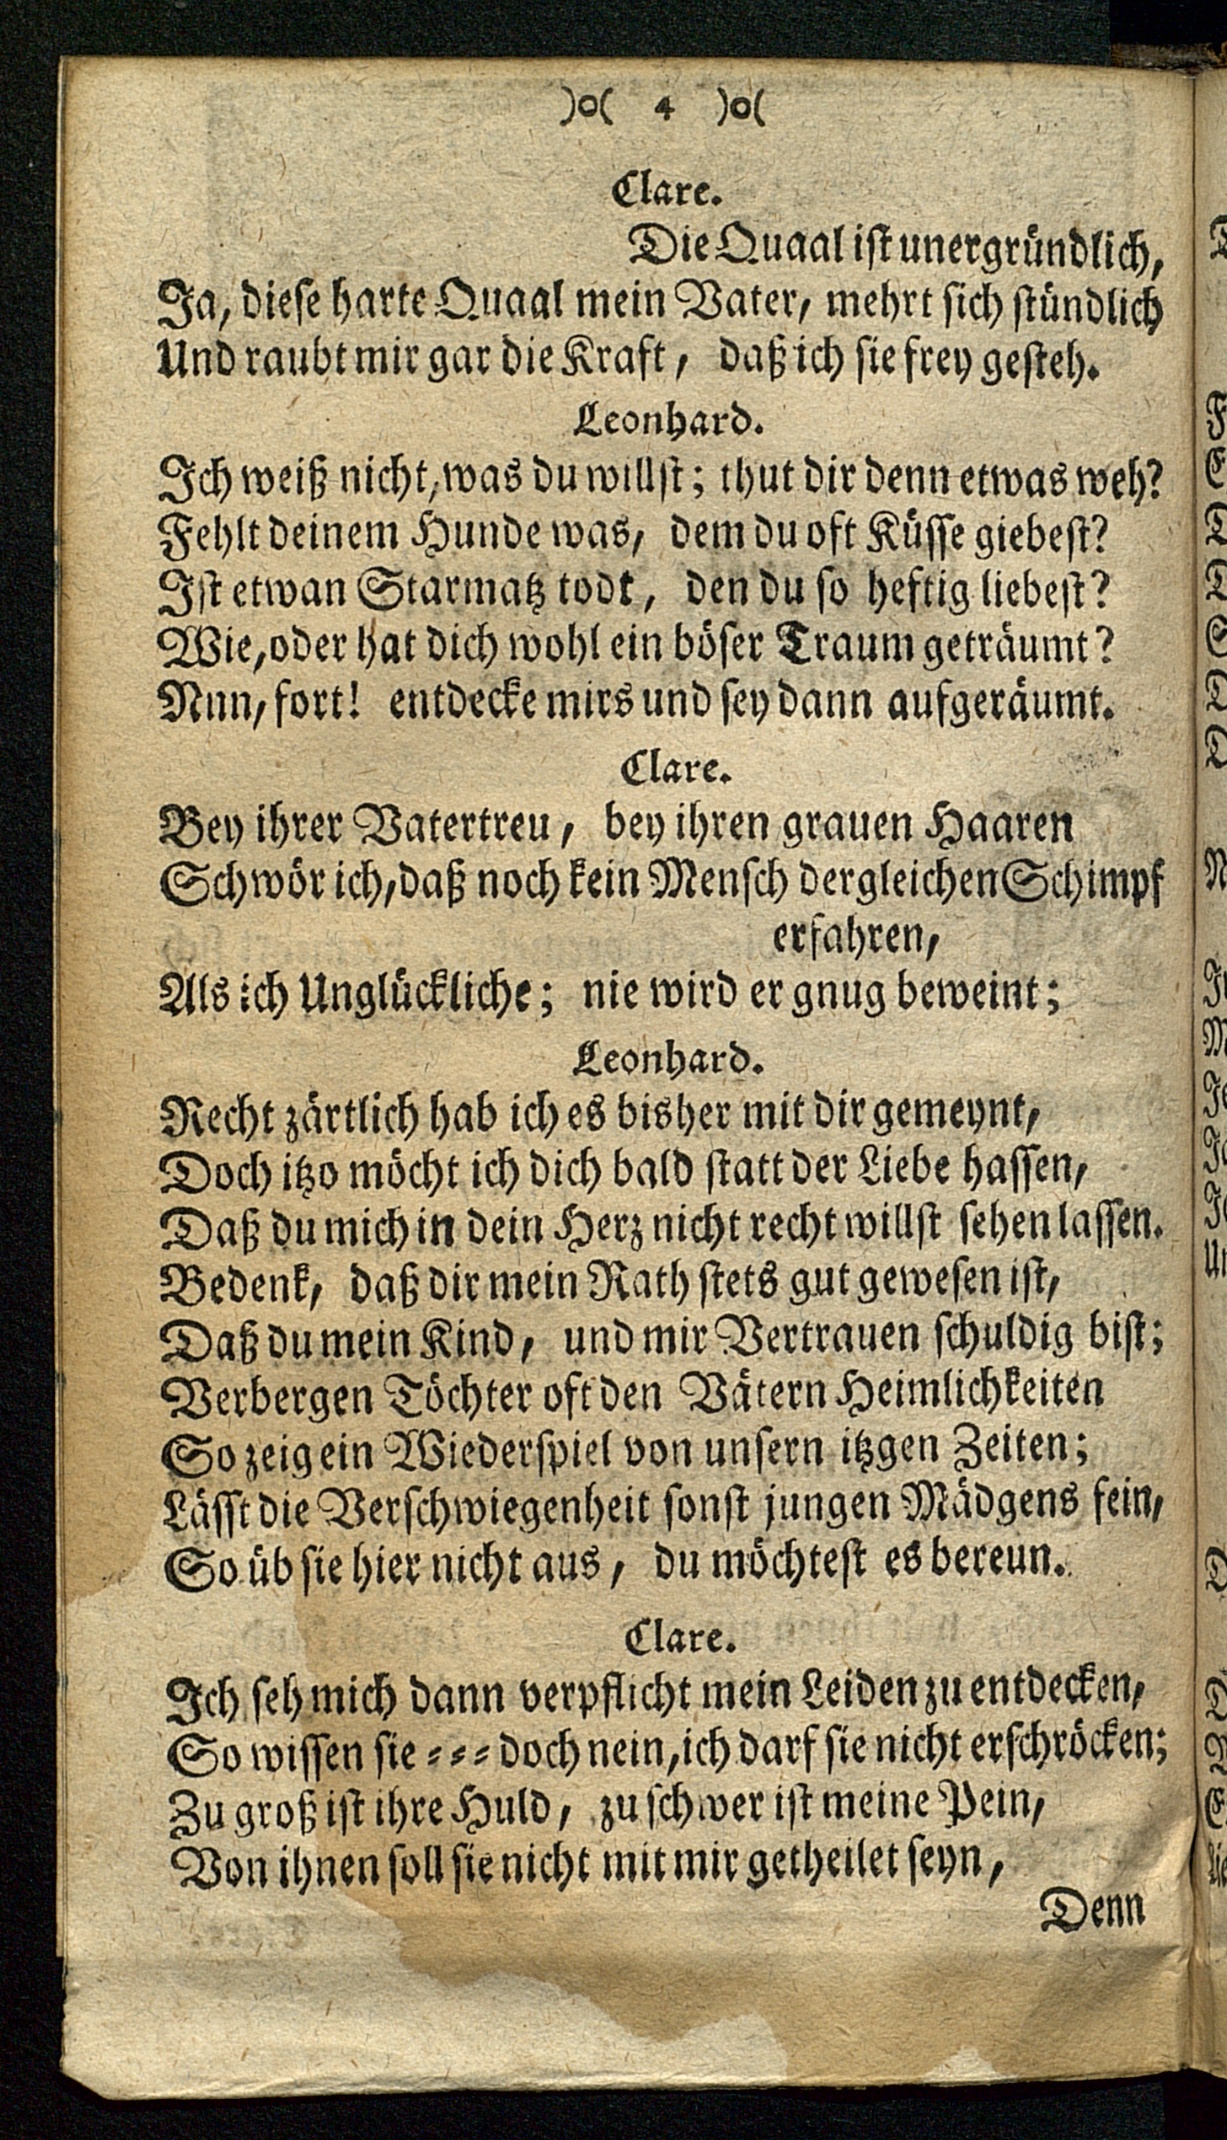 )o( 4 )o(
Clare.
Die Quaal ist unergründlich,
Ja, diese harte Quaal mein Vater, mehrt sich stündlich
Und raubt mir gar die Kraft, daß ich sie frey gesteh.
Leonhard.
Ich weiß nicht, was du willst; thut dir denn etwas weh?
Fehlt deinem Hunde was, dem du oft Küsse giebest?
Ist etwan Starmatz todt, den du so heftig liebest?
Wie, oder hat dich wohl ein böser Traum geträumt?
Nnn, fort! entdecke mirs und sey dann aufgeräumt.
Clare.
Bey ihrer Vatertreu, bey ihren grauen Haaren
Schwör ich, daß noch kein Mensch dergleichen Schimpf
erfahren,
Als ich Unglückliche; nie wird er gnug beweint;
Leonhard.
Recht zärtlich hab ich es bisher mit dir gemeynt,
Doch itzo möcht ich dich bald statt der Liebe hassen,
Daß du mich in dein Herz nicht recht willst sehen lassen.
Bedenk, daß dir mein Rath stets gut gewesen ist,
Daß du mein Kind, und mir Vertrauen schuldig bist;
Verbergen Töchter oft den Vätern Heimlichkeiten
So zeig ein Wiederspiel von unsern itzgen Zeiten;
Lässt die Verschwiegenheit sonst jungen Mädgens fein,
So üb sie hier nicht aus, du möchtest es bereun.
Clare.
Ich seh mich dann verpflicht mein Leiden zu entdecken,
So wissen sie = = = doch nein, ich darf sie nicht erschröcken;
Zu groß ist ihre Huld, zu schwer ist meine Pein,
Von ihnen soll sie nicht mit mir getheilet seyn,
Denn